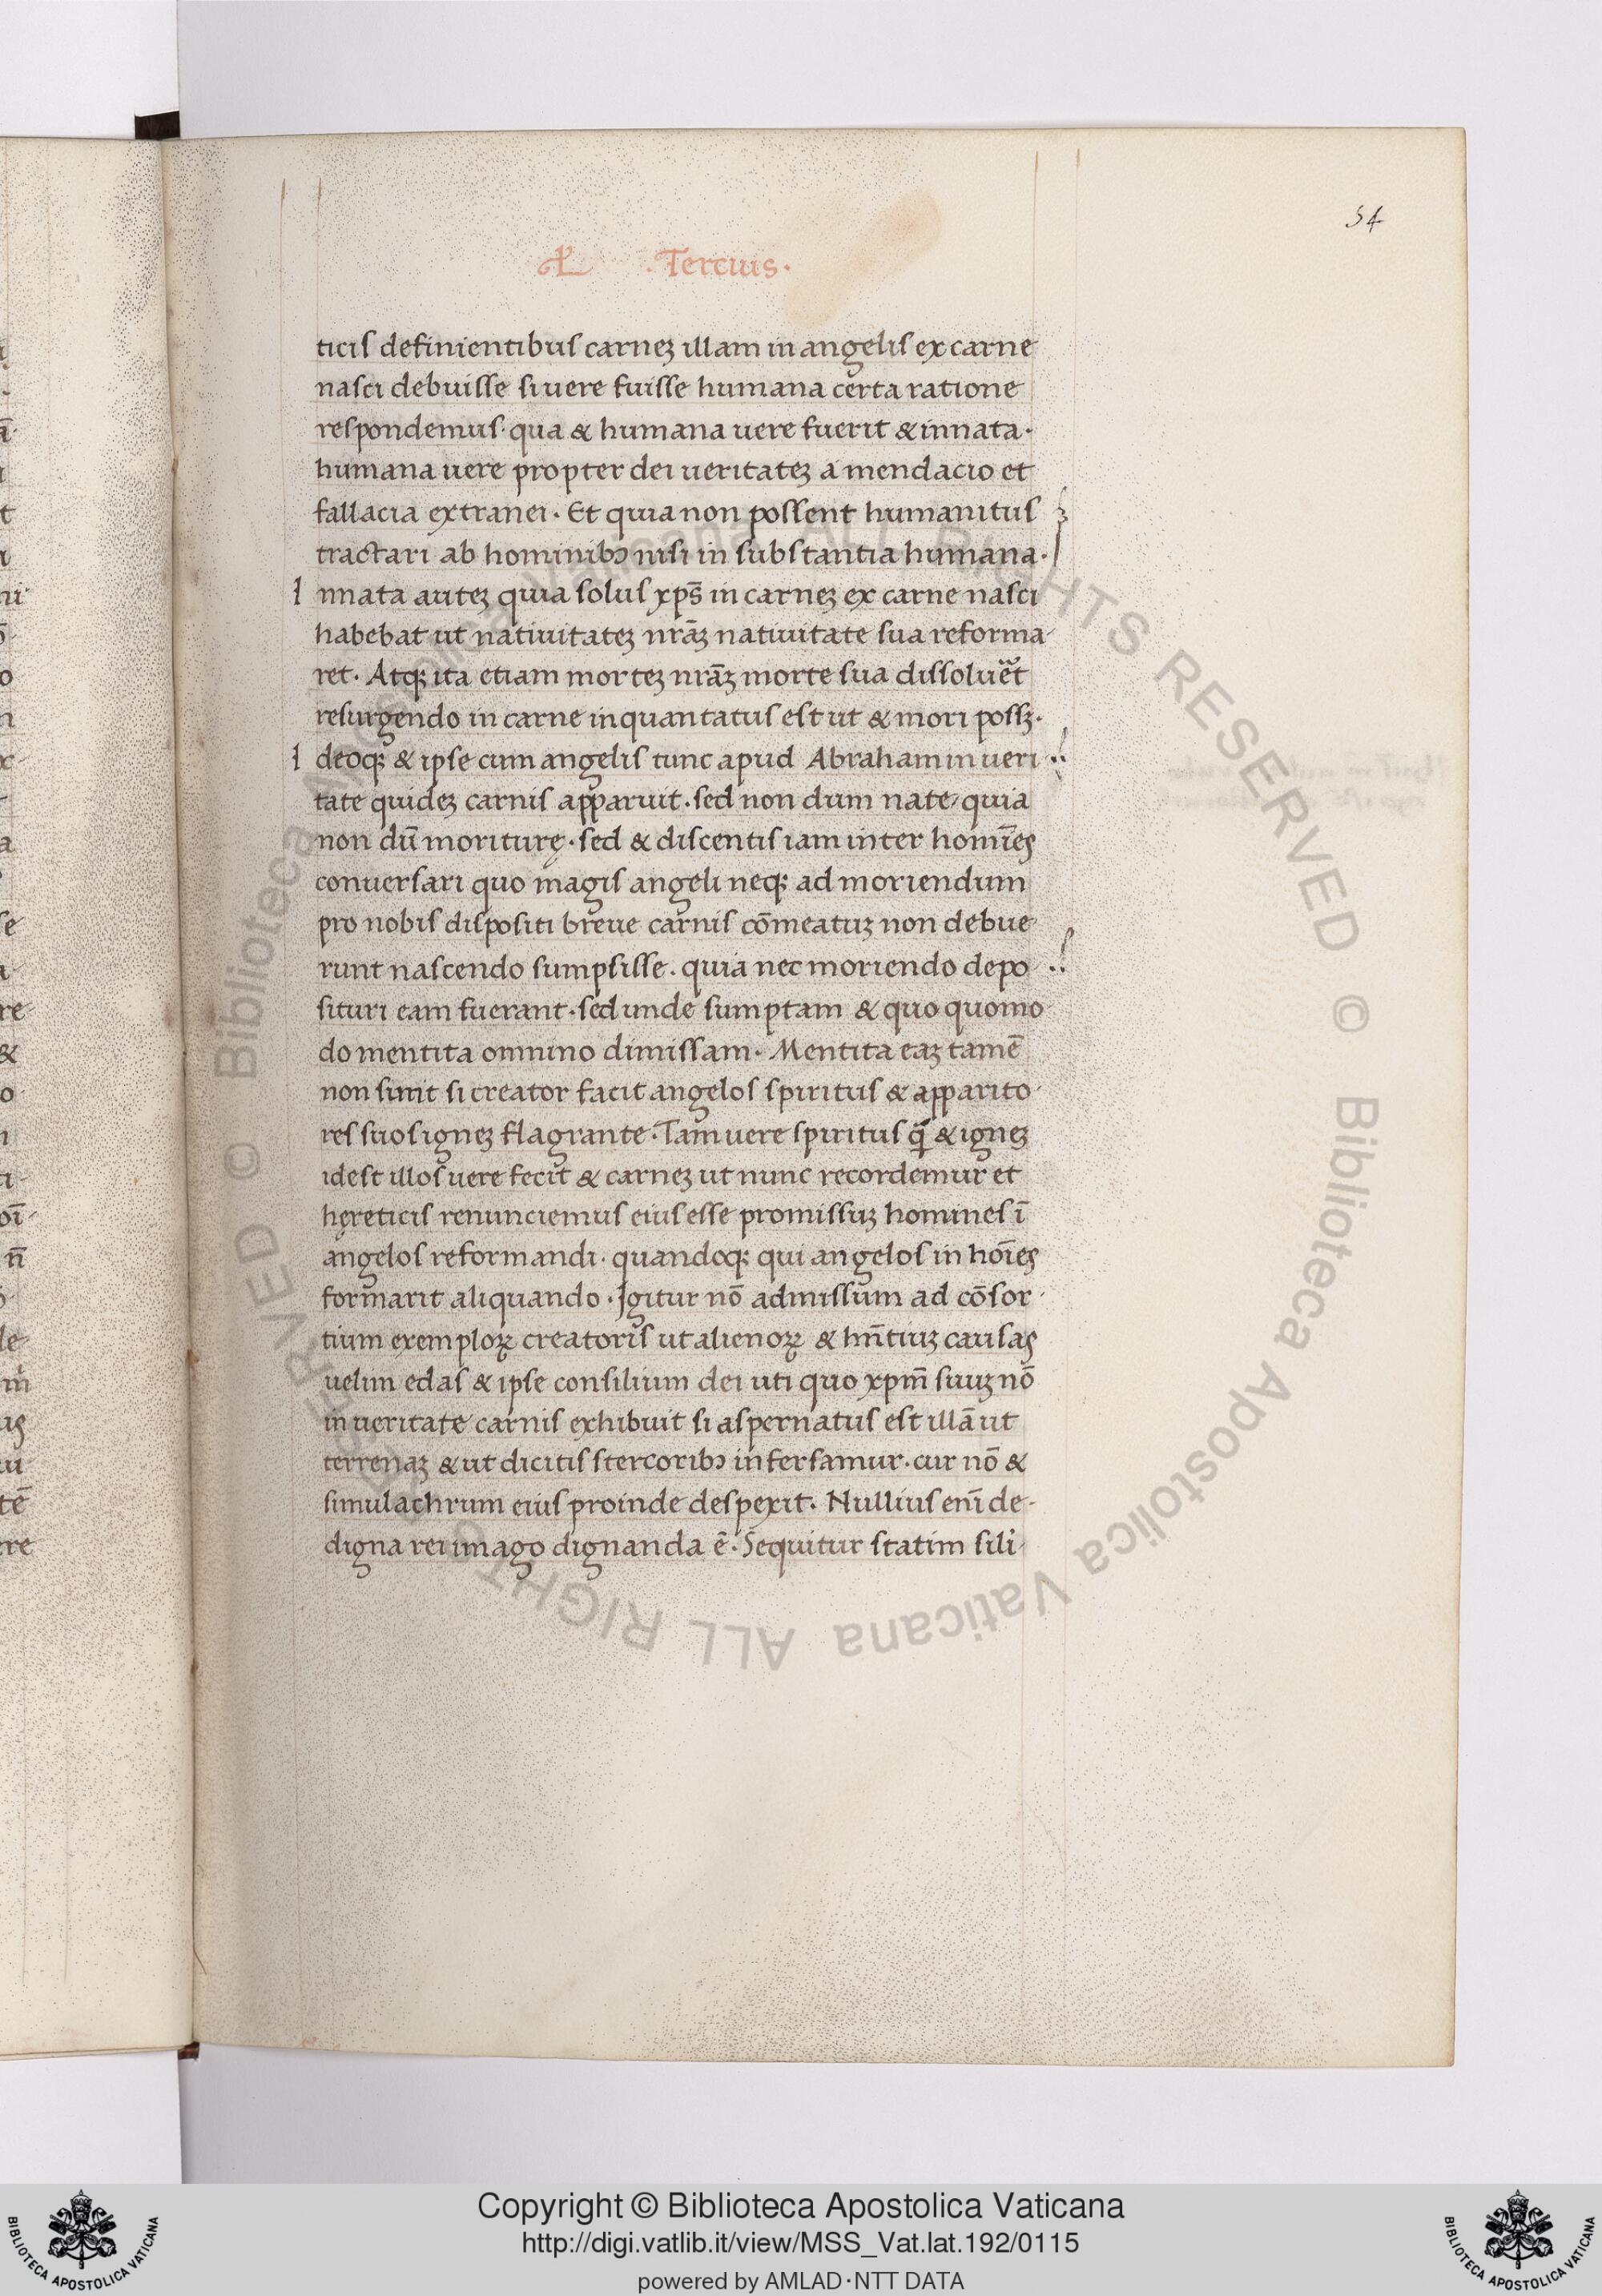 54
.Tercius.
ticis definientibus carneʒ illam in angelis ex carne
nasci debuisse si uere fuisse humana certa ratione
respondemus· qua & humana uere fuerit & innata·
humana uere propter dei ueritateʒ a mendacio et
fallacia extranei· Et quia non possent humanitus
tractari ab hominibꝰ nisi in substantia humana·
Innata auteʒ quia solus xp̄s in carneʒ ex carne nasci
habebat ut natiuitateʒ nr̄aʒ natiuitate sua reforma-
ret· Atqꝫ ita etiam morteʒ nr̄aʒ morte sua dissoluēt
resurgendo in carne in quan tatus est ut & mori possꝫ·
Ideoqꝫ & ipse cum angelis tunc apud Abraham in ueri
tate quideʒ carnis apparuit· sed non dum nate, quia
non dū moriturę· sed & discentis iam inter homīes
conuersari quo magis angeli neqꝫ ad moriendum
pro nobis dispositi breue carnis cōmeatuʒ non debue-
runt nascendo sumpsisse· quia nec moriendo depo-
situri eam fuerant· sed unde sumptam & quo quomo-
do mentita omnino dimissam· Mentita eaʒ tamē
non sunt si creator facit angelos spiritus & apparito-
res suos igneʒ flagrante· Tam uere spiritus q̄ & igneʒ
idest illos uere fecit & carneʒ ut nunc recordemur et
hęreticis renunciemus eius esse promissuʒ homines ī
angelos reformandi· quandoqꝫ qui angelos in hoīes
formarit aliquando· Igitur nō admissum ad cōsor-
tium exemploꝝ creatoris ut alienoꝝ & hn̄tiuʒ causas
uelim edas & ipse consilium dei uti quo xpm̄ suuʒ nō
in ueritate carnis exhibuit si aspernatus est illā ut
terrenaʒ & ut dicitis stercoribꝰ infersamur· cur nō &
simulachrum eius proinde despexit· Nullius enī de-
digna rei imago dignanda ē· Sequitur statim sili-
Copyright © Biblioteca Apostolica Vaticana
http://digi.vatlib.it/view/MSS_Vat.lat.192/0115
powered by AMLAD·NTT DATA
BIBLIOTECA APOSTOLICA VATICANA
BIBLIOTECA APOSTOLICA VATICANA